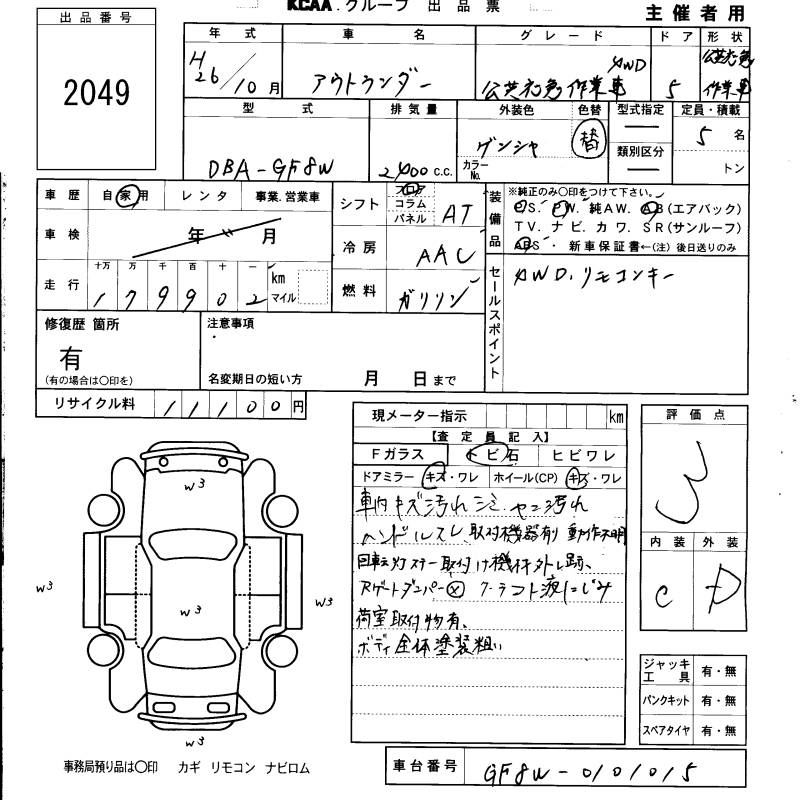 KCAA.グループ 出品票
主催者用
出品番号
2049
年式 車名 グレード ドア 形状
H26/10月 アウトランダー 公共応急作業車 4WD 5 公共応急作業車
型式 排気量 外装色 色替 型式指定 定員・積載
DBA-GF8W 2,400 c.c. ガンシャ 替 — 5 名
カラーNo. 類別区分 — トン
車歴 自家用 レンタ 事業.営業車
車検 年 月
走行 十万 万 千 百 十 一 km マイル
179902
シフト フロア コラム パネル AT
冷房 AAC
燃料 ガソリン
装備品
※純正のみ〇印をつけて下さい。
P.S. P.W. 純AW. A.B(エアバック)
TV. ナビ. カワ. SR(サンルーフ)
ABS・新車保証書←(注)後日送りのみ
セールスポイント
4WD.リモコンキー
修復歴 箇所
有
(有の場合は〇印を)
注意事項
名変期日の短い方 月 日まで
リサイクル料 11100円
現メーター指示 km
【査定員記入】
Fガラス トビ石 ヒビワレ
ドアミラー キズ・ワレ ホイール(CP) キズ・ワレ
車内キズ汚れシミ.ヤニ汚れ
ハンドルスレ.取付機器有り 動作不明
回転灯.ステー取付け機材外し跡、
Rゲートダンパー× クーラント液にじみ
荷室取付物有、
ボディ全体塗装粗い
評価点
3
内装 外装
C D
ジャッキ工具 有・無
パンクキット 有・無
スペアタイヤ 有・無
W3
W3
W3
W3
W3
事務局預り品は〇印 カギ リモコン ナビロム
車台番号 GF8W-0101015